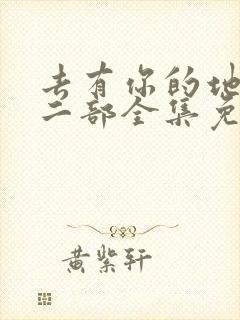 去有你的地
二部全集免
黄紫轩